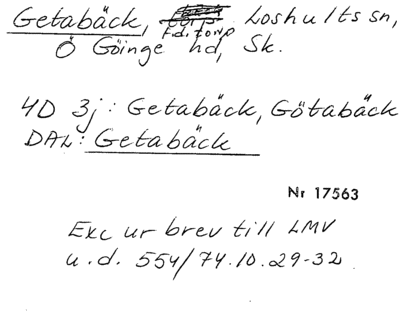 Getabäck, F.d. torp Loshults sn,
Ö Göinge hd, Sk.
4D 3j: Getabäck, Götabäck
DAL: Getabäck
Nr 17563
Exc ur brev till LMV
u.d. 554/74.10.29-32